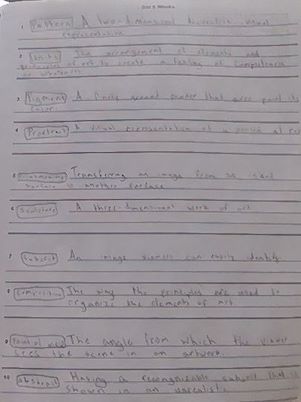 1. Pattern A two-dimensional decorative visual
2. Unity The arrangement of elements and
principles of art to create a feeling of completeness
or wholeness
3. Pigment A finely ground powder that gives paint its
color.
4. Portrait A visual representation of a person at
5. Transferring an image from
surface to another surface
6. Sculpture A three-dimensional work of art
7. Subject An image viewers can easily identify.
8. Composition The way the principles are used to
organize the elements of art.
9. Point of view The angle from which the viewer
sees the scene in an artwork.
10. Abstract Having a recognizable subject that is
shown in an unrealistic